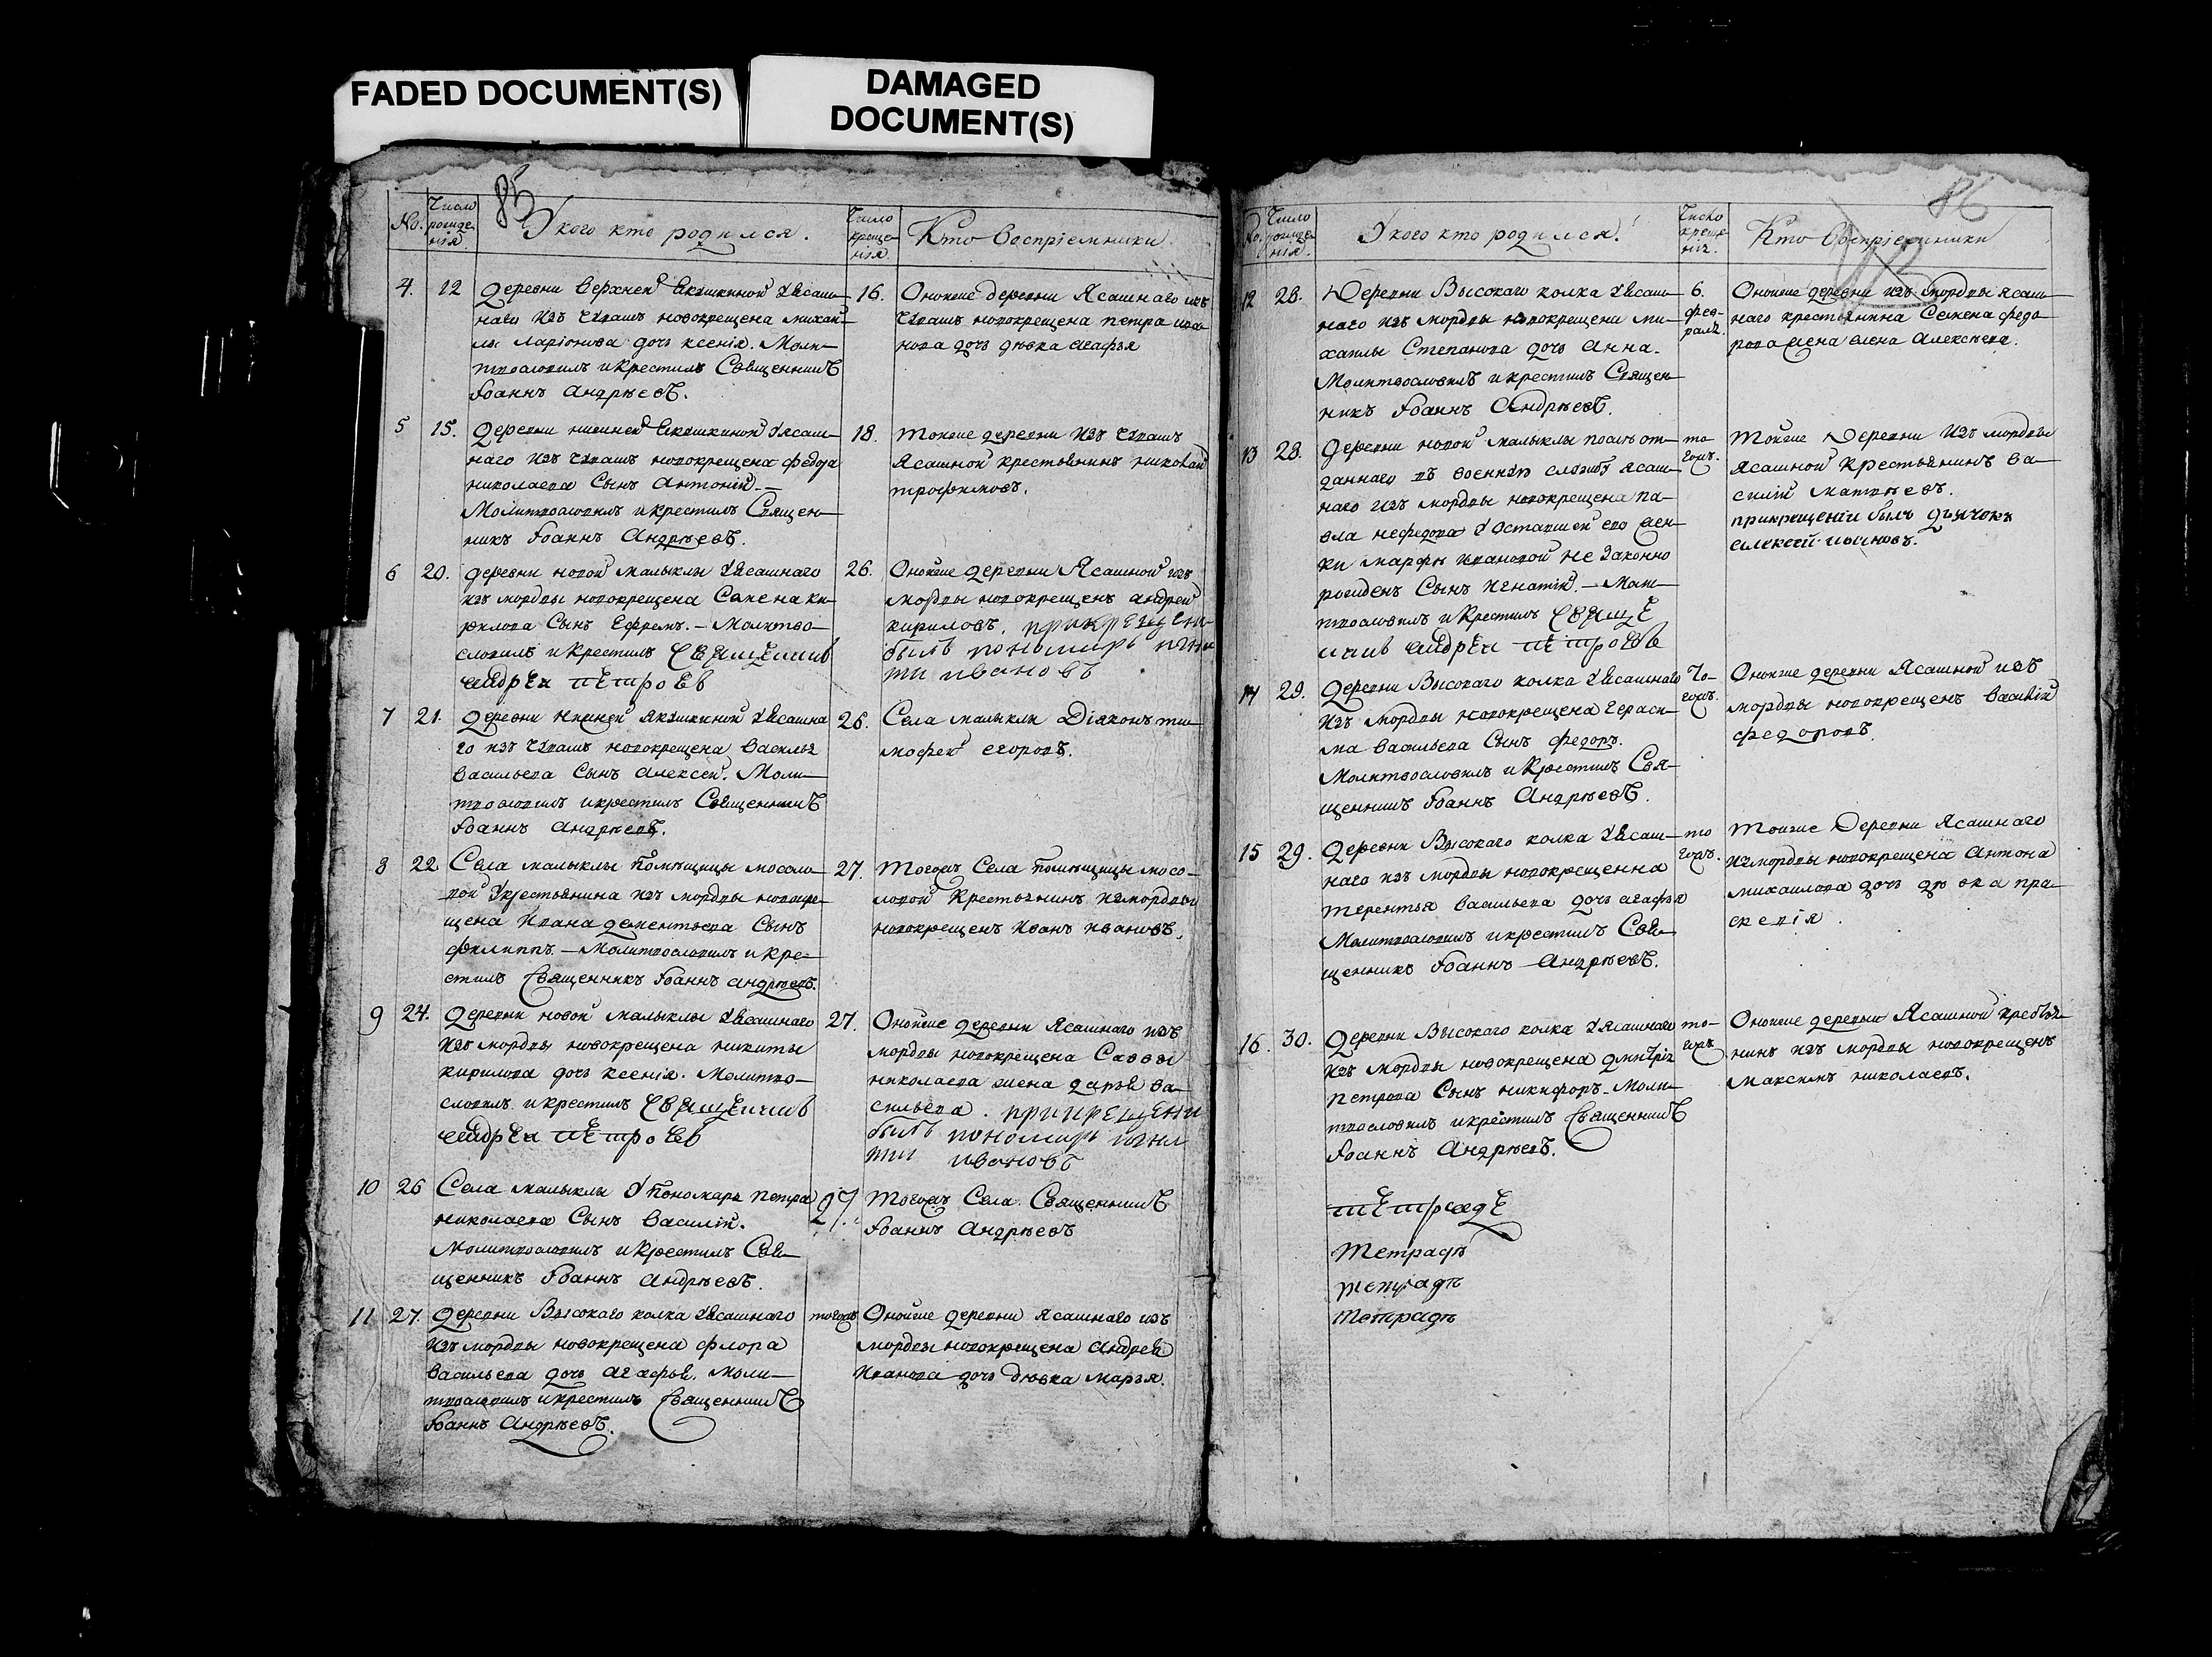 FADED DOCUMENT(S)
DAMAGED
DOCUMENT(S)
85
No.
Число рожденія.
У кого кто родился.
Число крещенія.
Кто Воспріемники
4. 12
Деревни верхней Якушкиной Уясаш-
наго изъ Чувашъ новокрещена михаи-
лы ларіонова дочь ксенія. Моли-
твословилъ и крестилъ Священникъ
Іоаннъ Андрѣевъ.
16.
Оной же деревни Ясашнаго изъ
Чувашъ новокрещена петра ива-
нова дочь дѣвка агафья
5 15.
Деревни нижней Якушкиной Уясаш-
наго изъ Чувашъ новокрещена федора
николаева Сынъ Антоній. —
Молитвословилъ и крестилъ Священ-
никъ Іоаннъ Андрѣевъ.
18.
Той же деревни изъ Чувашъ
Ясашной крестьянинъ николай
трофимовъ.
6 20.
деревни новой малыклы Уясашнаго
изъ мордвы новокрещена Семена ки-
рилова Сынъ Ефремъ. — Молитво-
словилъ и крестилъ священникъ
андрей петровъ
26.
Оной же деревни Ясашной изъ
мордвы новокрещенъ андрей
кириловъ. при крещени
былъ пономарь игна
ти ивановъ
7 21.
Деревни Нижней Якушкиной Уясашна
го изъ Чувашъ новокрещена Василья
Васильева Сынъ алексей. Моли-
твословилъ и крестилъ Священникъ
Іоаннъ Андрѣевъ.
26.
Села малыклы Діяконъ ти-
мофей егоровъ.
8 22
Села малыклы помѣщицы мосоло-
вой Укрестьянина изъ мордвы новокре-
щена Ивана дементьева Сынъ
филиппъ. — Молитвословилъ и кре-
стилъ Священникъ Іоаннъ андрѣевъ.
27.
Тогожъ Села помѣщицы мосо-
ловой Крестьянинъ измордвы
новокрещенъ Иванъ ивановъ.
9 24.
Деревни новой малыклы Уясашнаго
изъ мордвы новокрещена никиты
кирилова дочь ксенія. Молитво-
словилъ и крестилъ священникъ
андрей петровъ
27.
Оной же деревни Ясашнаго изъ
мордвы новокрещена Саввы
николаева жена дарья ва-
сильева. при крещени
былъ пономарь игна
тии ивановъ
10 26
Села малыклы Упономаря петра
николаева Сынъ Василій.
Молитвословилъ и Крестилъ Свя-
щенникъ Іоаннъ Андрѣевъ.
27.
Тогожъ Села Священникъ
Іоаннъ Андрѣевъ
11 27.
Деревни Высокаго колка Уясашнаго
изъ мордвы новокрещена флора
Васильева дочь агафья. Моли-
твословилъ и крестилъ Священникъ
Іоаннъ Андрѣевъ.
тогожъ
Оной же деревни Ясашнаго изъ
мордвы новокрещена Андрея
Иванова дочь дѣвка марья.
86
No.
Число рожденія.
У кого кто родился.
Число крещенія.
Кто Воспріемники
12 28.
Деревни Высокаго колка Уясаш-
наго изъ мордвы новокрещена ми-
хаилы Степанова дочь Анна.
Молитвословилъ и крестилъ Священ-
никъ Іоаннъ Андрѣевъ.
6.
фев-
раля.
Оной же деревни изъ мордвы ясаш-
наго крестьянина Семена федо-
рова жена елена Алексѣева.
13 28.
Деревни новой малыклы послѣ от-
даннаго въ военную службу ясаш-
наго изъ мордвы новокрещена па-
вла нефедова Уоставшей его жен-
ки марфы Ивановой не законно
рожденъ Сынъ Игнатій. — Моли-
твословилъ и крестилъ свяще
никъ андреи петровъ
то
гожъ.
Той же Деревни изъ мордвы
Ясашной крестьянинъ ва-
силій матвѣевъ.
прикрещеніи былъ дьячокъ
алексей ивановъ.
14 29.
Деревни Высокаго колка Уясашнаго
изъ мордвы новокрещена гераси-
ма васильева Сынъ федоръ.
Молитвословилъ и Крестилъ Свя-
щенникъ Іоаннъ Андрѣевъ.
То-
гожъ.
Оной же деревни Ясашной изъ
мордвы новокрещенъ василій
федоровъ.
15 29.
Деревни Высокаго колка Уясаш-
наго изъ мордвы новокрещенна
терентья васильева дочь агафья
Молитвословилъ и крестилъ Свя-
щенникъ Іоаннъ Андрѣевъ.
то
гожъ.
Той же Деревни Ясашнаго
измордвы новокрещена Антона
михаилова дочь дѣвка пра-
сковія.
16. 30.
Деревни Высокаго колка Уясашнаго
изъ мордвы новокрещена дмитрія
петрова Сынъ никифоръ. Моли-
твословилъ и крестилъ Священникъ
Іоаннъ Андрѣевъ.
то-
гожъ
Оной же деревни Ясашной крестья-
нинъ изъ мордвы новокрещенъ
максимъ николаевъ.
тетраде
Тетрадь
тетрадь
Тетрадь